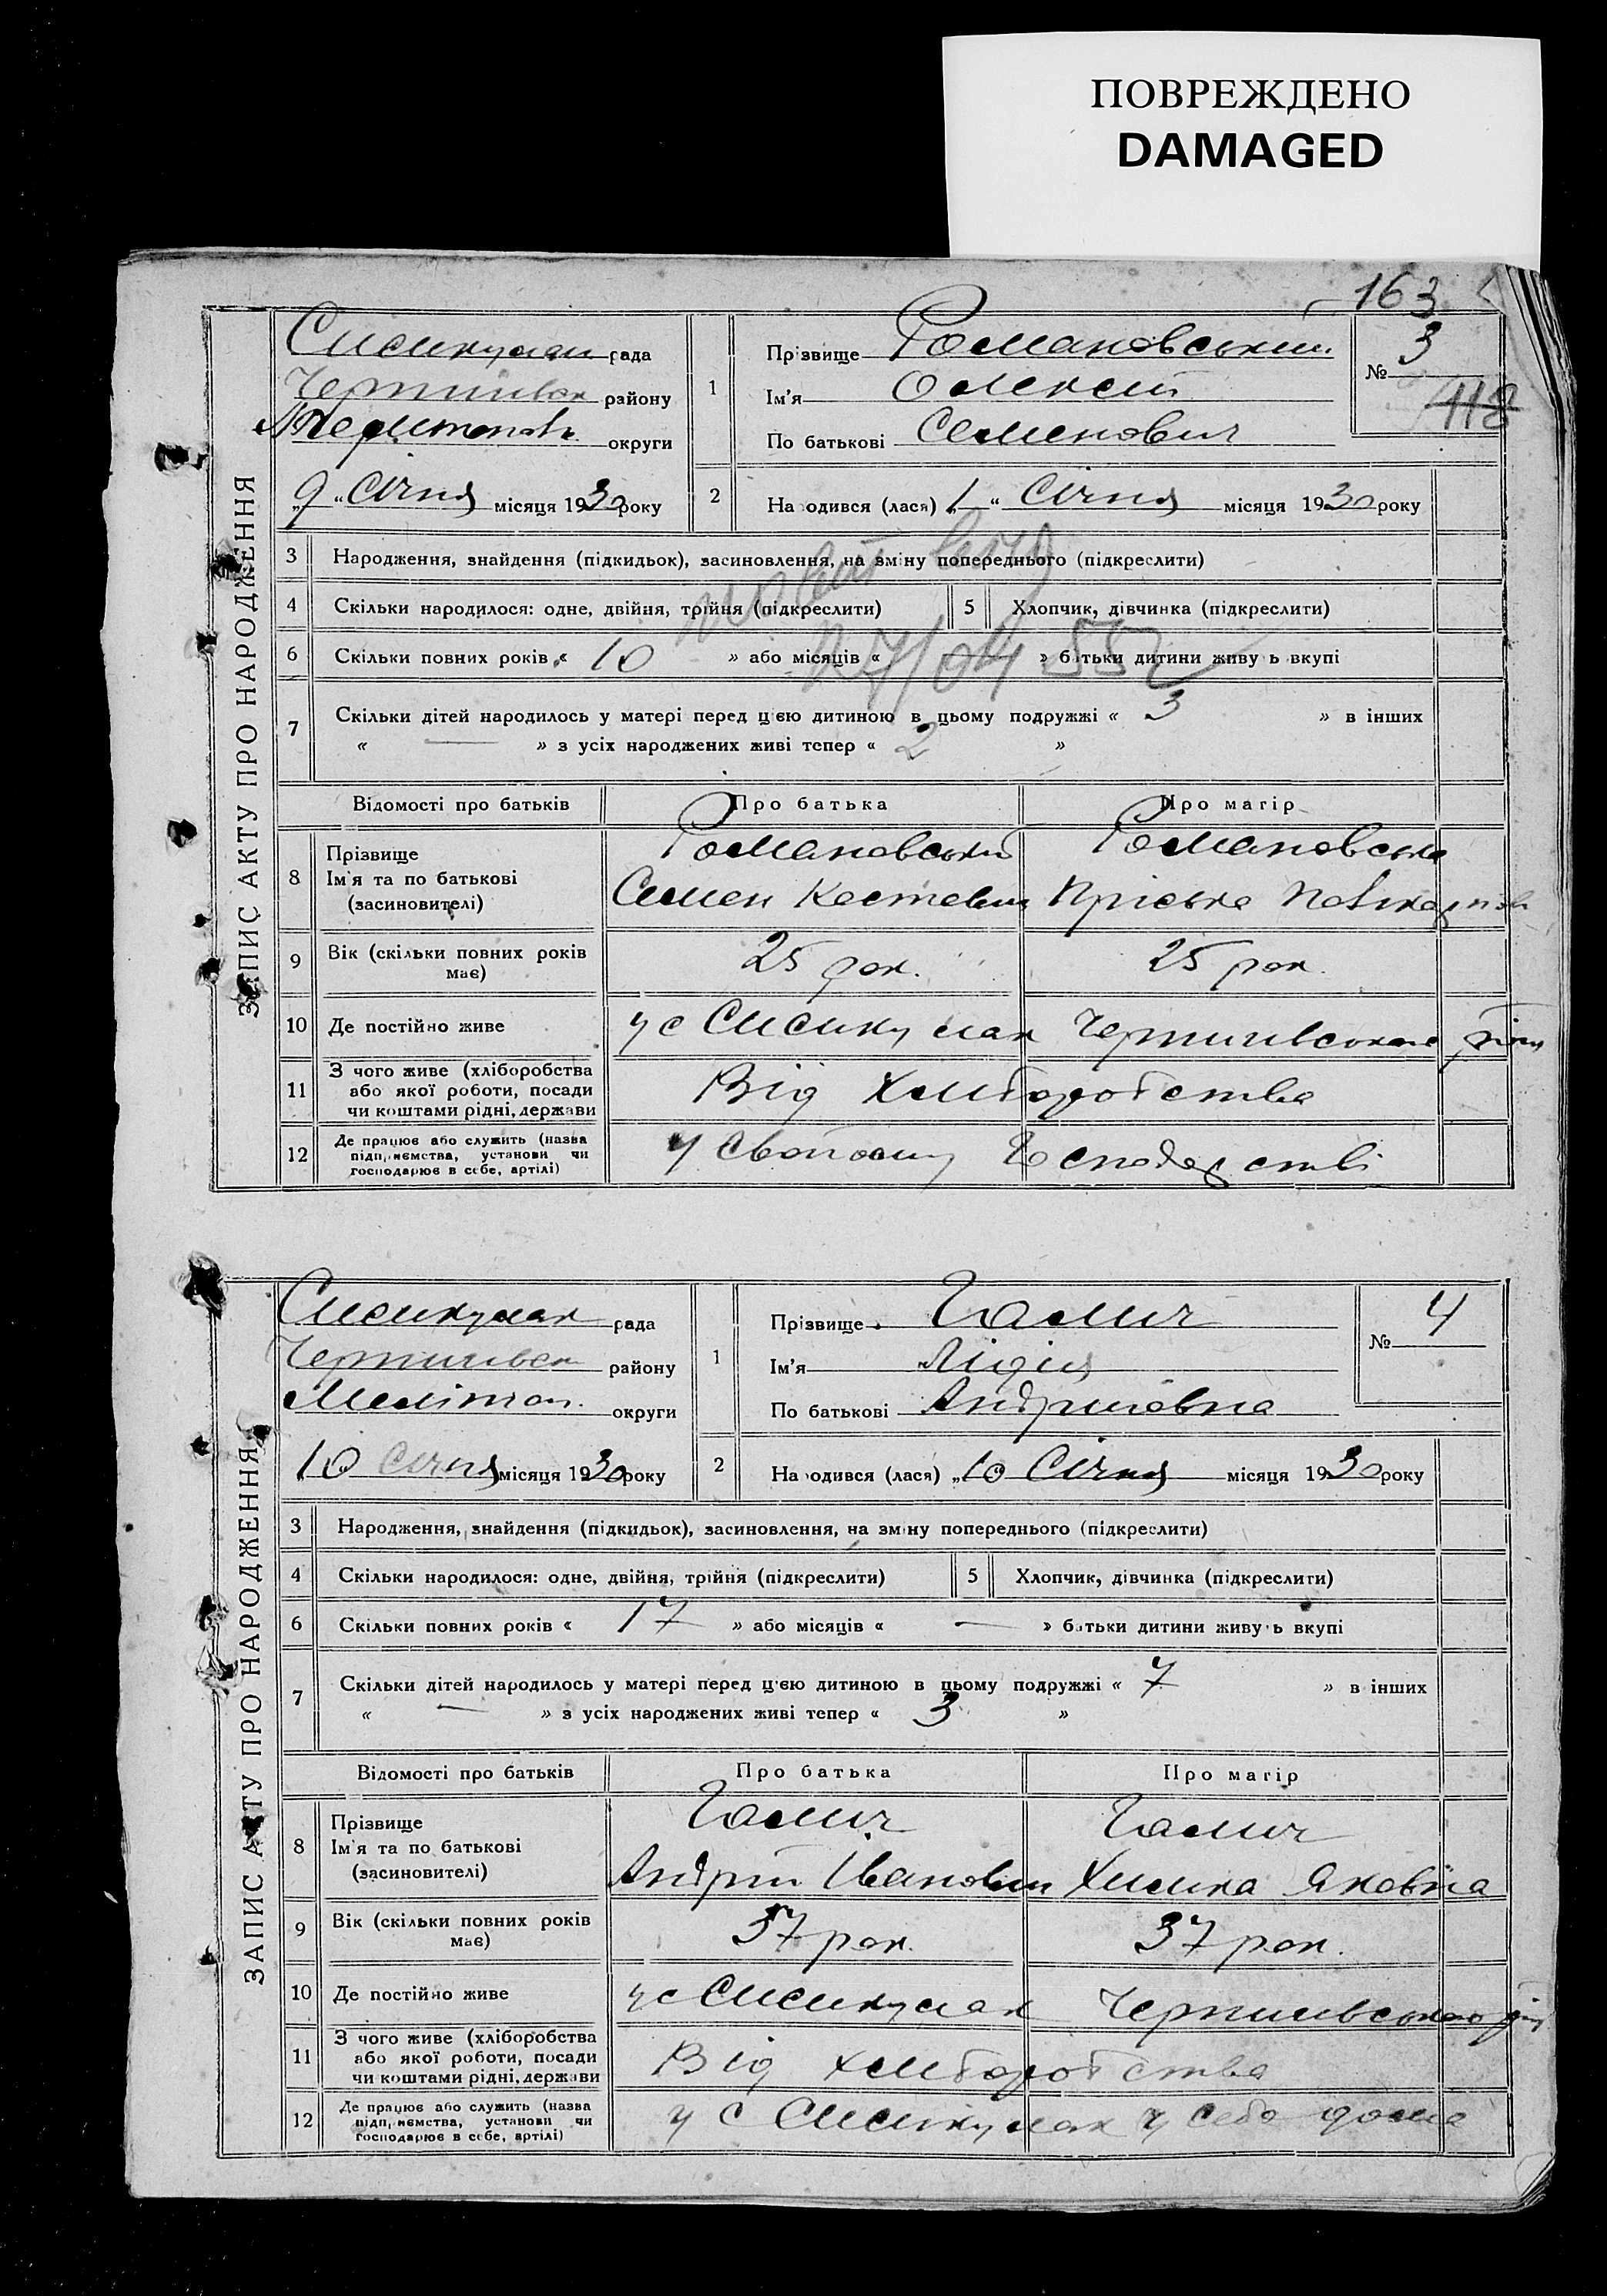 ПОВРЕЖДЕНО
DAMAGED
163
ЗАПИС АКТУ ПРО НАРОДЖЕННЯ
Сисикулак рада
Чернигівськ району
округи
9 „ Січня місяця 1930 року
1 Прізвище Романовський
Ім'я Олексій
По батькові Семенович
№ 3
118
2 Народився (лася) „1“ Січня місяця 1930 року
3 Народження, знайдення (підкидьок), засиновлення, на зміну попереднього (підкреслити)
4 Скільки народилося: одне, двійня, трійня (підкреслити) 5 Хлопчик, дівчинка (підкреслити)
6 Скільки повних років « 10 » або місяців « — » батьки дитини живуть вкупі
7 Скільки дітей народилось у матері перед цією дитиною в цьому подружжі « 3 » в інших
« — » з усіх народжених живі тепер « 2 »
Відомості про батьків Про батька Про матір
8 Прізвище Романовський Романовська
Ім'я та по батькові Семен Костович Пріська
(засиновителі)
9 Вік (скільки повних років має) 25 рок. 25 рок.
10 Де постійно живе у с Сисикулак Чернигівського
11 З чого живе (хліборобства
або якої роботи, посади
чи коштами рідні, держави Від хліборобства
12 Де працює або служить (назва
підприємства, установи чи
господарює в себе, артілі) У свойому Господарстві
ЗАПИС АКТУ ПРО НАРОДЖЕННЯ
Сисикулак рада
Чернигівськ району
Мелітоп. округи
10 Січня місяця 1930 року
1 Прізвище Галич
Ім'я Лідія
По батькові Андріївна
№ 4
2 Народився (лася) „10 Січня місяця 1930 року
3 Народження, знайдення (підкидьок), засиновлення, на зміну попереднього (підкреслити)
4 Скільки народилося: одне, двійня, трійня (підкреслити) 5 Хлопчик, дівчинка (підкреслити)
6 Скільки повних років « 17 » або місяців « — » батьки дитини живуть вкупі
7 Скільки дітей народилось у матері перед цією дитиною в цьому подружжі « 7 » в інших
« — » з усіх народжених живі тепер « 3 »
Відомості про батьків Про батька Про матір
8 Прізвище Галич Галич
Ім'я та по батькові Андрій Іванович Химка Яковна
(засиновителі)
9 Вік (скільки повних років має) 37 рок. 37 рок.
10 Де постійно живе у с Сисикулак Чернигівського
11 З чого живе (хліборобства
або якої роботи, посади
чи коштами рідні, держави Від хліборобства
12 Де працює або служить (назва
підприємства, установи чи
господарює в себе, артілі) у с Сисикулак у себе дома